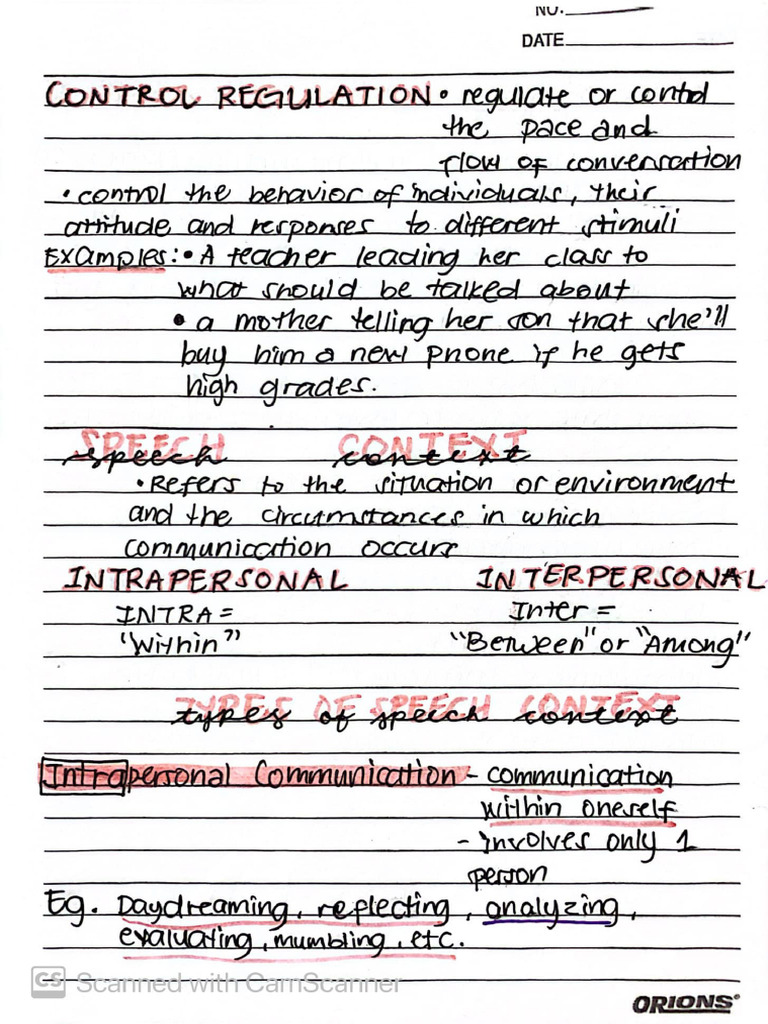 NO.
DATE
CONTROL REGULATION • regulate or control
the pace and
flow of conversation
• control the behavior of individuals, their
attitude and responses to different stimuli
Examples: • A teacher leading her class to
what should be talked about
• a mother telling her son that she'll
buy him a new phone if he gets
high grades.
SPEECH CONTEXT
speech context
• Refers to the situation or environment
and the circumstances in which
communication occurs
INTRAPERSONAL INTERPERSONAL
INTRA = Inter =
"Within" "Between" or "Among"
TYPES OF SPEECH CONTEXT
types of speech context
Intrapersonal Communication - communication
within oneself
- involves only 1
person
Eg. Daydreaming, reflecting, analyzing,
evaluating, mumbling, etc.
CS Scanned with CamScanner
ORIONS